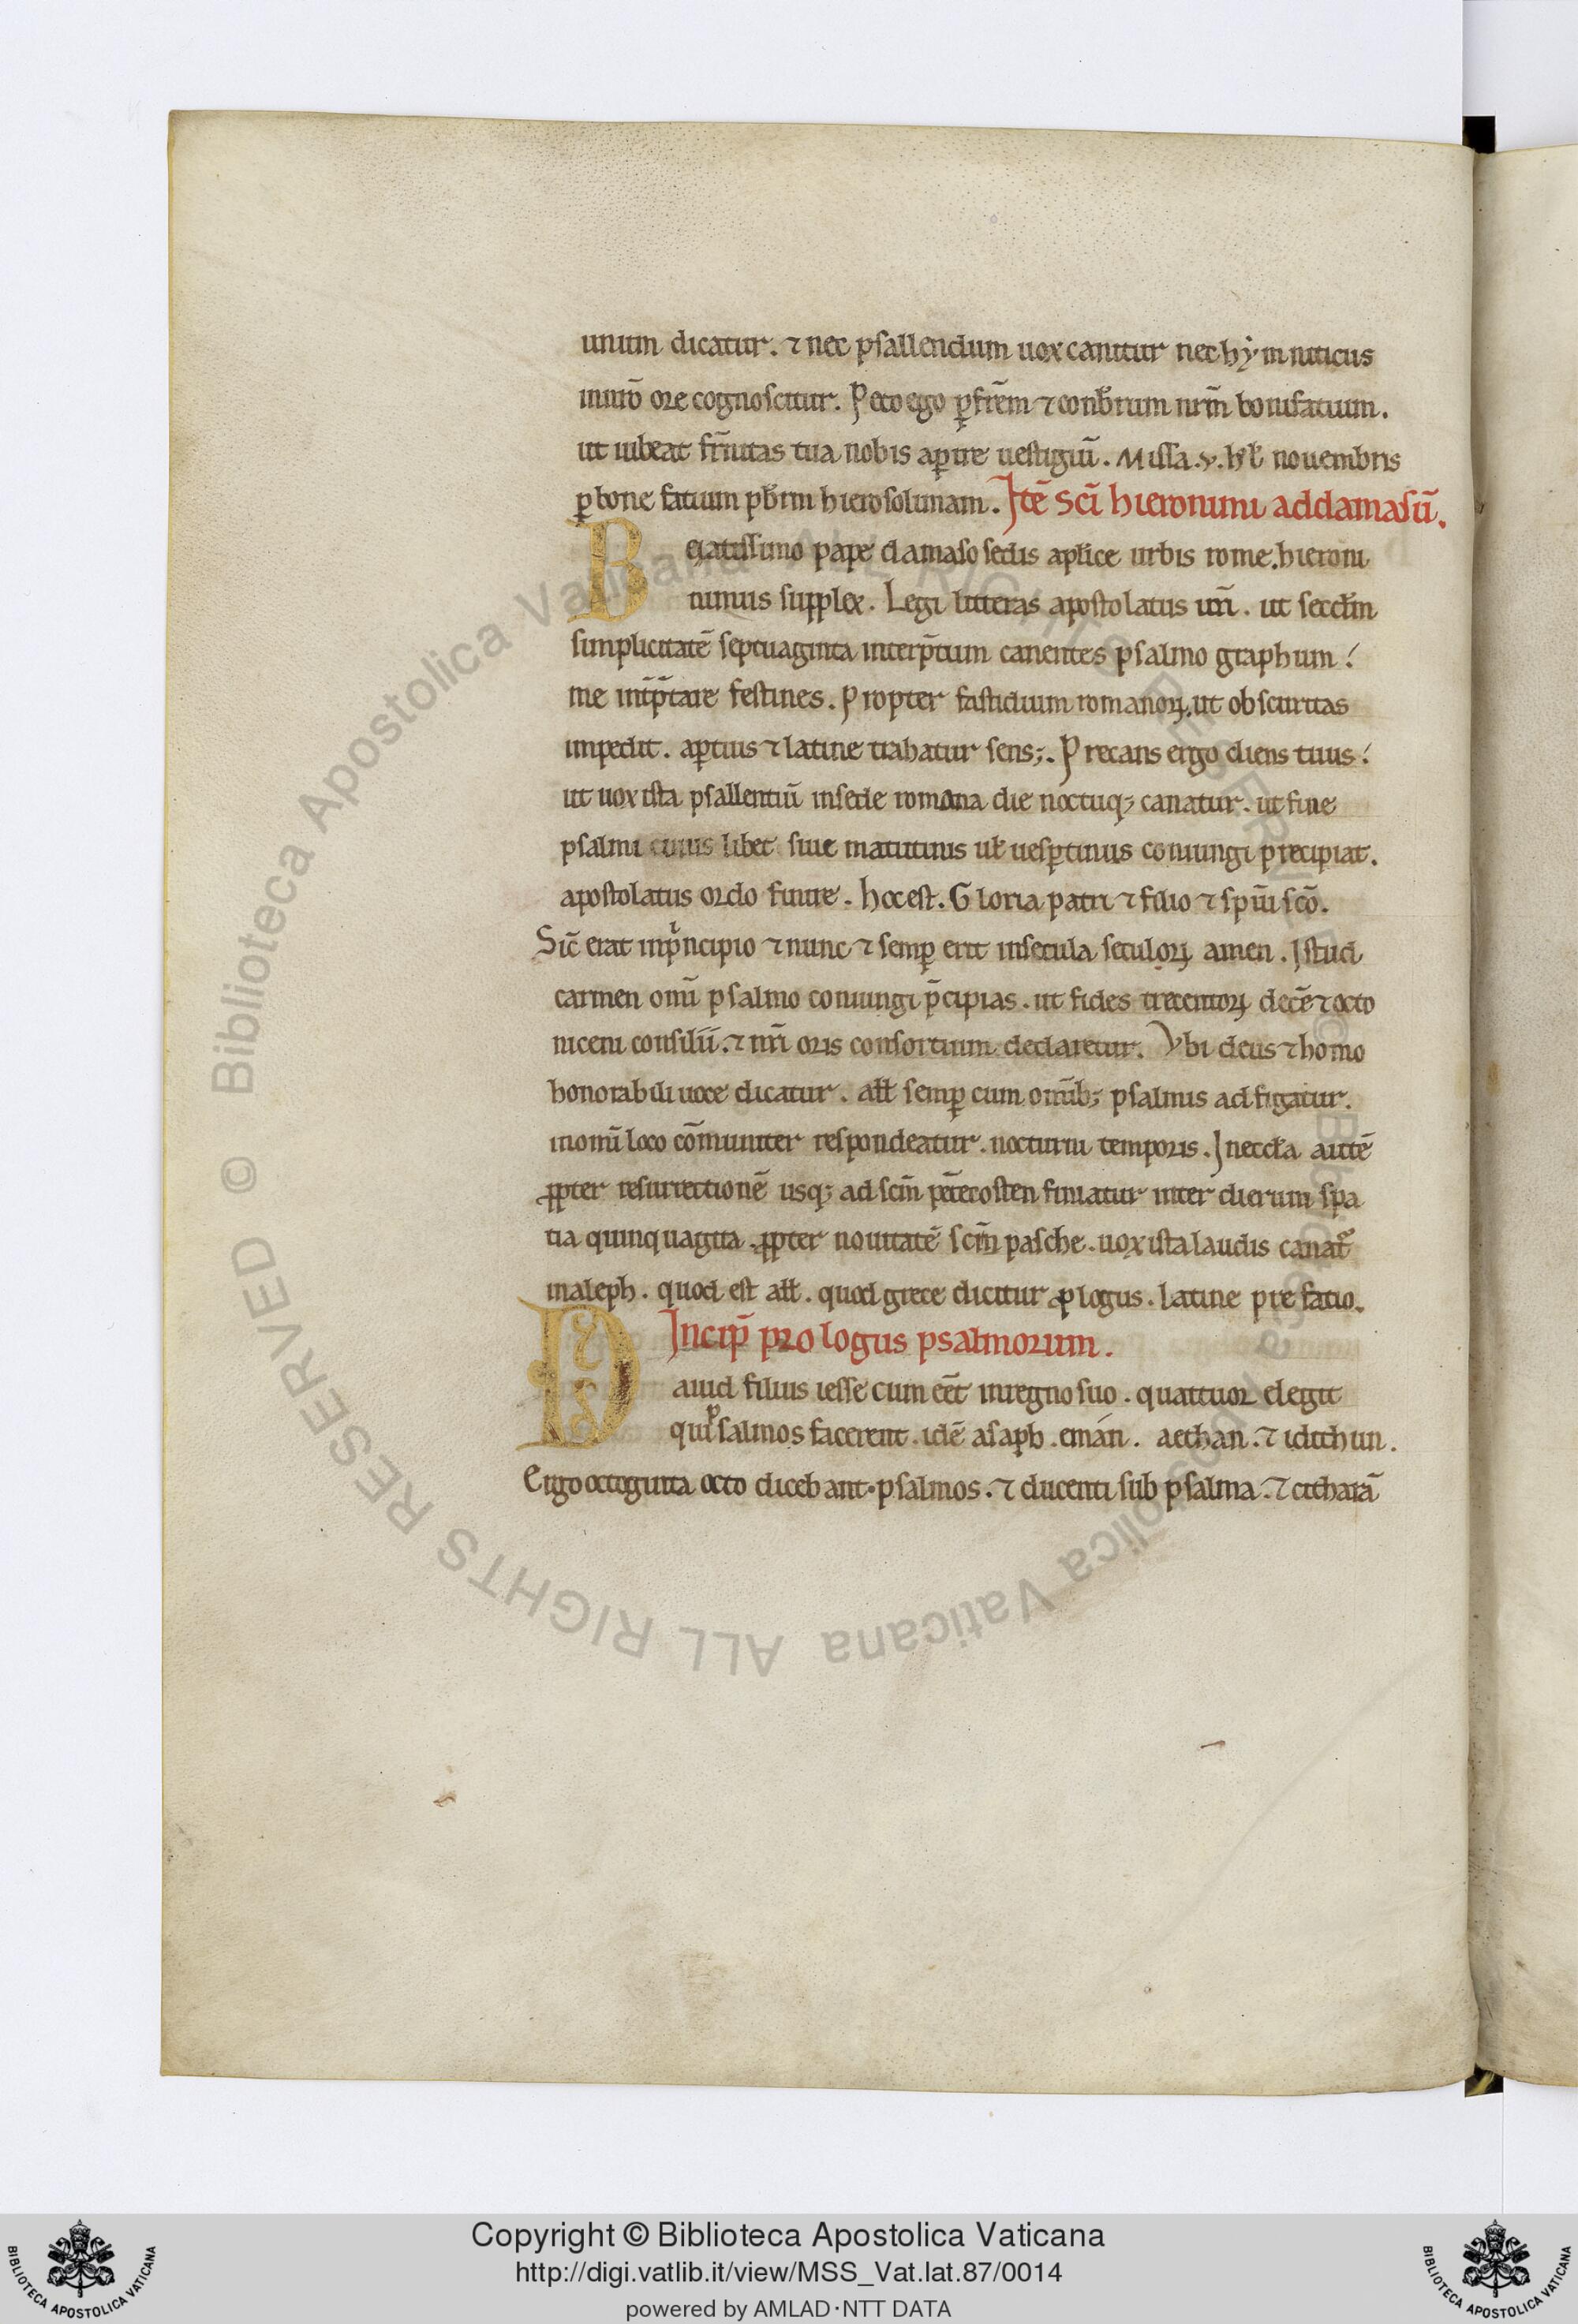 unum dicatur. ⁊ nec psallendum uox canitur nec hẏmniticus
inūrō ore cognoscitur. Peto ego ꝑ frēm ⁊ conpb̄rum nrm̄ bonifatium.
ut iubeat fr̄nitas tua nobis aꝑire uestigiū. Missa .v. kƚ nouembris
ꝑ bone fatium pb̄rm hierosolimam. Itē sc̄i hieronimi ad damasū.
Beatissimo pape damaso sedis aplice urbis rome. hieroni
nimus supplex. Legi litteras apostolatus ur̄i. ut secdm̄
simplicitatē septuaginta interp̄tum canentes psalmo graphum!
me int̄p̄tare festines. Propter fastidium romanoꝝ. ut obscuritas
impedit. aꝑtius ⁊ latine trahatur sens;. Precans ergo cliens tuus!
ut uox ista psallentiū in sede romana die noctuq; canatur. ut fine
psalmi cuius libet siue matutinis uƚ uesꝑtinus coniungi precipiat.
apostolatus ordo finire. hoc est. Gloria patri ⁊ filio ⁊ spūi scō.
Sic̄ erat in pⁱncipio ⁊ nunc ⁊ semꝑ erit in secula seculoꝝ amen. Istud
carmen omī psalmo coniungi p̄cipias. ut fides trecentoꝝ decē ⁊ octo
niceni consilii. ⁊ nr̄i oris consortium declaretur. Vbi deus ⁊ homo
honorabili uoce dicatur. aƚƚ semꝑ cum omīb; psalmis adfigatur.
in omī loco cōmuniter respondeatur. nocturni temporis. In eccƚa autē
ꝓpter resurrectionē usq; ad scm̄ pētecosten finiatur inter dierum spa
tia quinquagita. ꝓpter nouitatē scm̄ pasche. uox ista laudis canat᷑
in aleph. quod est aƚƚ. quod grece dicitur ꝓlogus. latine prefatio.
Incip̄ prologus psalmorum.
Dauid filius iesse cum eēt in regno suo. quattuor elegit
qui psalmos facerent. idē asaph. emán. aethan. ⁊ idithun.
Ergo octoginta octo dicebant. psalmos. ⁊ ducenti sub psalma. ⁊ citharā
Copyright © Biblioteca Apostolica Vaticana
http://digi.vatlib.it/view/MSS_Vat.lat.87/0014
powered by AMLAD·NTT DATA
BIBLIOTECA APOSTOLICA VATICANA
BIBLIOTECA APOSTOLICA VATICANA
© Biblioteca Apostolica Vaticana ALL RIGHTS RESERVED
© Biblioteca Apostolica Vaticana ALL RIGHTS RESERVED